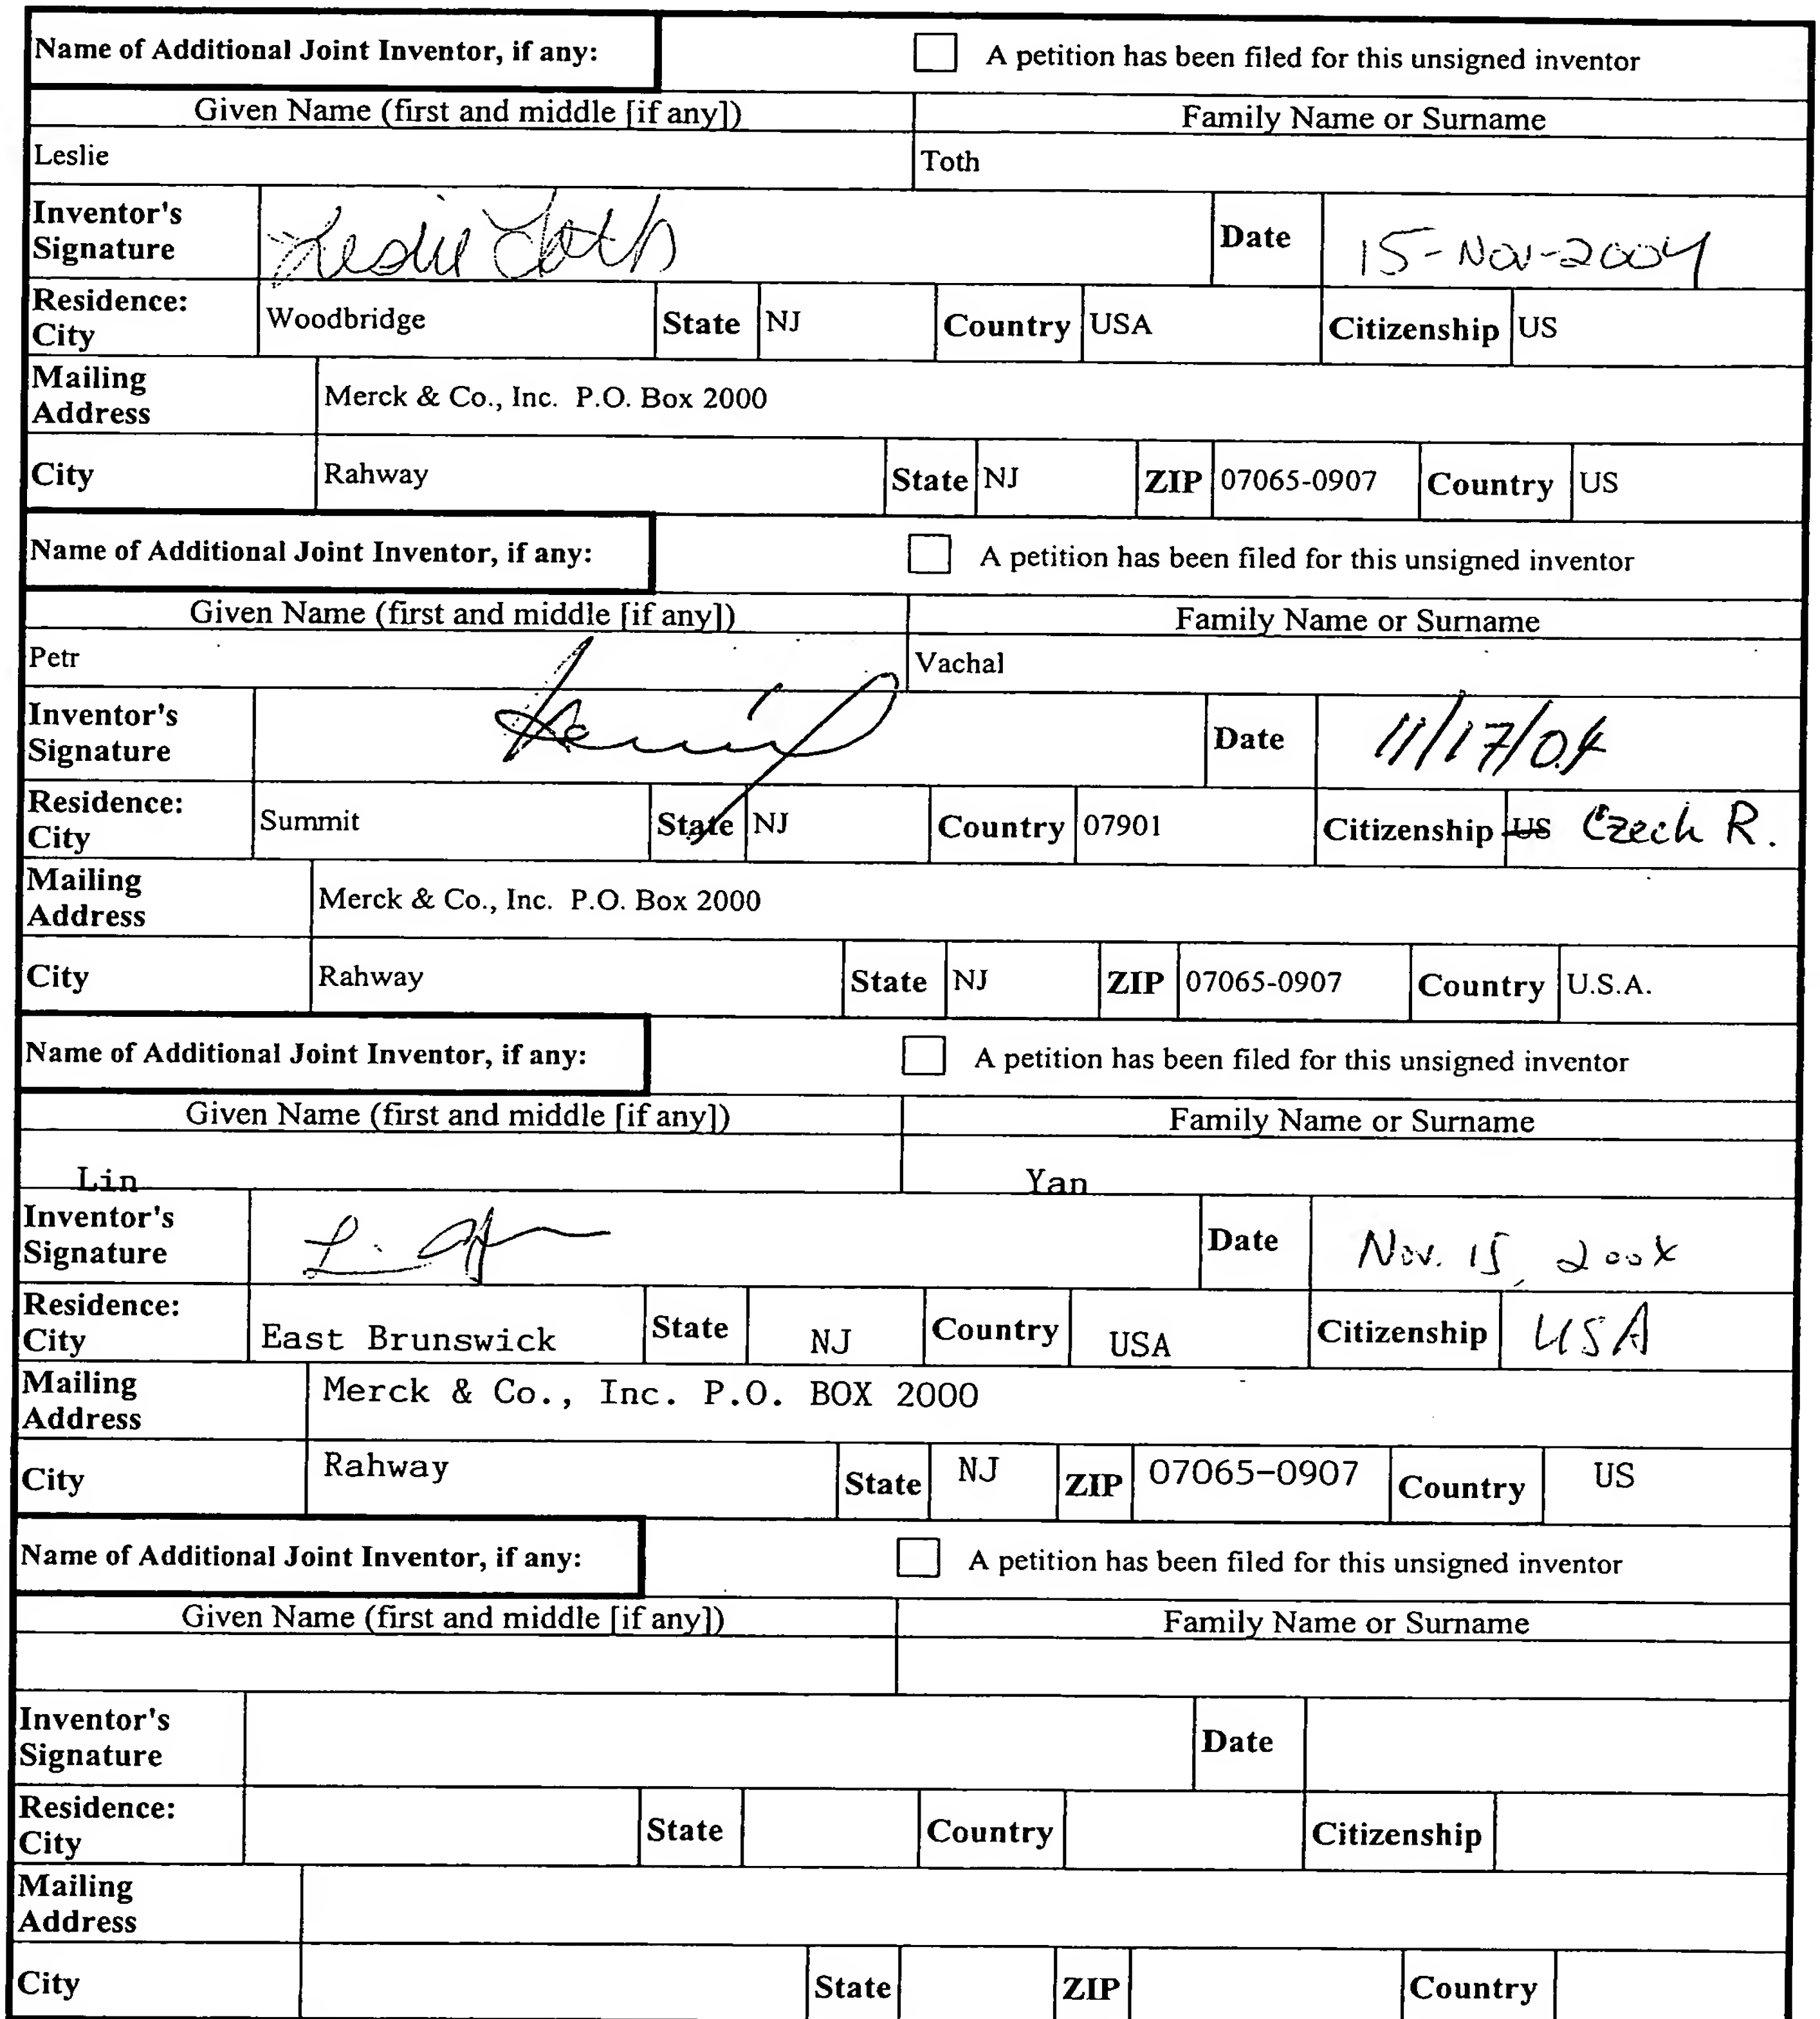 Name of Additional Joint Inventor, if any: A petition has been filed for this unsigned inventor
Given Name (first and middle [if any]) Family Name or Surname
Leslie Toth
Inventor's Signature Leslie Toth Date 15-Nov-2004
Residence: City Woodbridge State NJ Country USA Citizenship US
Mailing Address Merck & Co., Inc. P.O. Box 2000
City Rahway State NJ ZIP 07065-0907 Country US
Name of Additional Joint Inventor, if any: A petition has been filed for this unsigned inventor
Given Name (first and middle [if any]) Family Name or Surname
Petr Vachal
Inventor's Signature Date 11/17/04
Residence: City Summit State NJ Country 07901 Citizenship US Czech R.
Mailing Address Merck & Co., Inc. P.O. Box 2000
City Rahway State NJ ZIP 07065-0907 Country U.S.A.
Name of Additional Joint Inventor, if any: A petition has been filed for this unsigned inventor
Given Name (first and middle [if any]) Family Name or Surname
Lin Yan
Inventor's Signature Date Nov. 15, 2004
Residence: City East Brunswick State NJ Country USA Citizenship USA
Mailing Address Merck & Co., Inc. P.O. BOX 2000
City Rahway State NJ ZIP 07065-0907 Country US
Name of Additional Joint Inventor, if any: A petition has been filed for this unsigned inventor
Given Name (first and middle [if any]) Family Name or Surname
Inventor's Signature Date
Residence: City State Country Citizenship
Mailing Address
City State ZIP Country